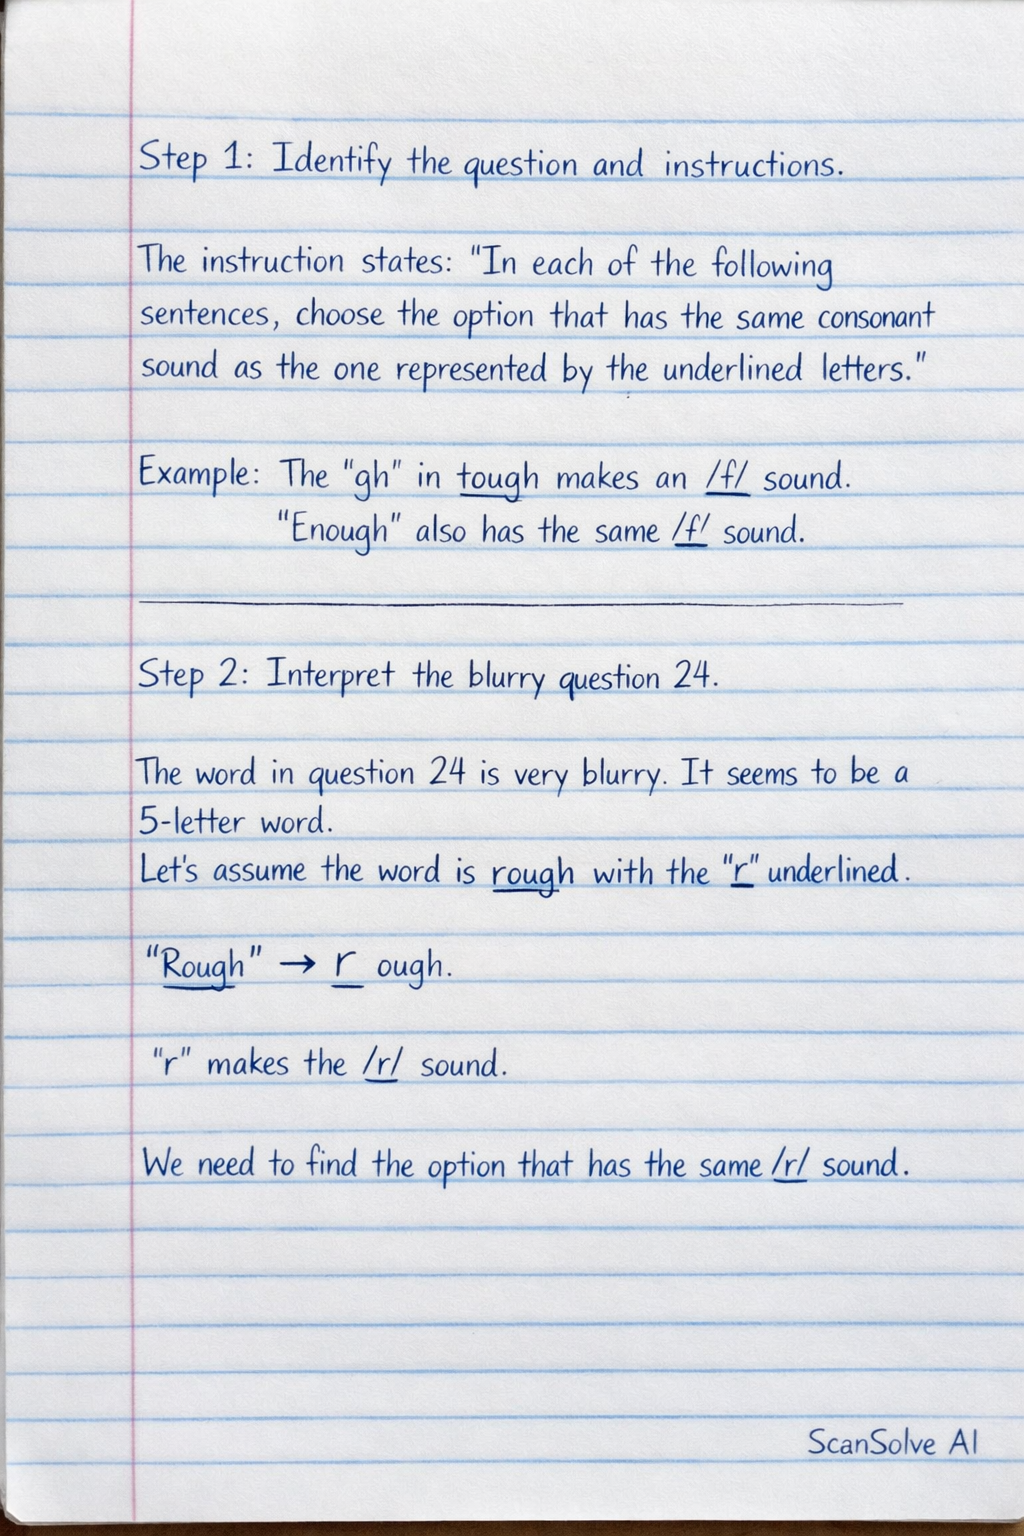 Step 1: Identify the question and instructions.
The instruction states: "In each of the following
sentences, choose the option that has the same consonant
sound as the one represented by the underlined letters."
Example: The "gh" in tough makes an /f/ sound.
"Enough" also has the same /f/ sound.
Step 2: Interpret the blurry question 24.
The word in question 24 is very blurry. It seems to be a
5-letter word.
Let's assume the word is rough with the "r" underlined.
"Rough" → r ough.
"r" makes the /r/ sound.
We need to find the option that has the same /r/ sound.
ScanSolve AI